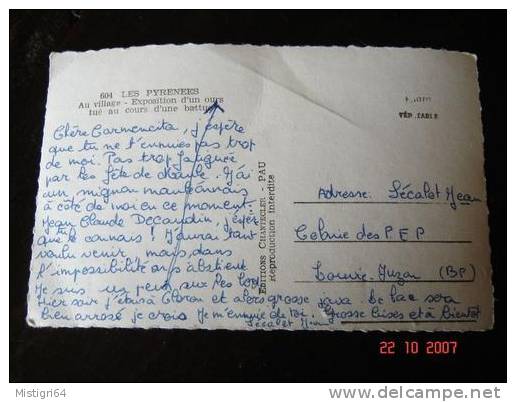 604 LES PYRENEES
Au village - Exposition d'un ours
tué au cours d'une battue
VÉRITABLE
Chère Carmencita, j'espère
que tu ne t'ennuies pas trop
de moi. Pas trop fatiguée
par les fête de Baule. J'ai
un mignon mauléonnais
à côté de moi en ce moment.
Jean Claude Decaudin, j'espère
que tu le connais ! J'aurai tant
voulu venir, mais dans
l'impossibilité on s'abstient
Je suis un peu sur les
Hier soir j'étais à Oloron et alors grosse java. Le bac sera
bien arrosé je crois. Je m'ennuie de toi. Grosse bises et à bientôt
Sécalet Jean
EDITIONS CHANTECLER - PAU
Reproduction interdite
Adresse: Sécalet Jean
Colonie des P.E.P
Louvie-Juzon (BP)
22 10 2007
Mistigri64
www.delcampe.net